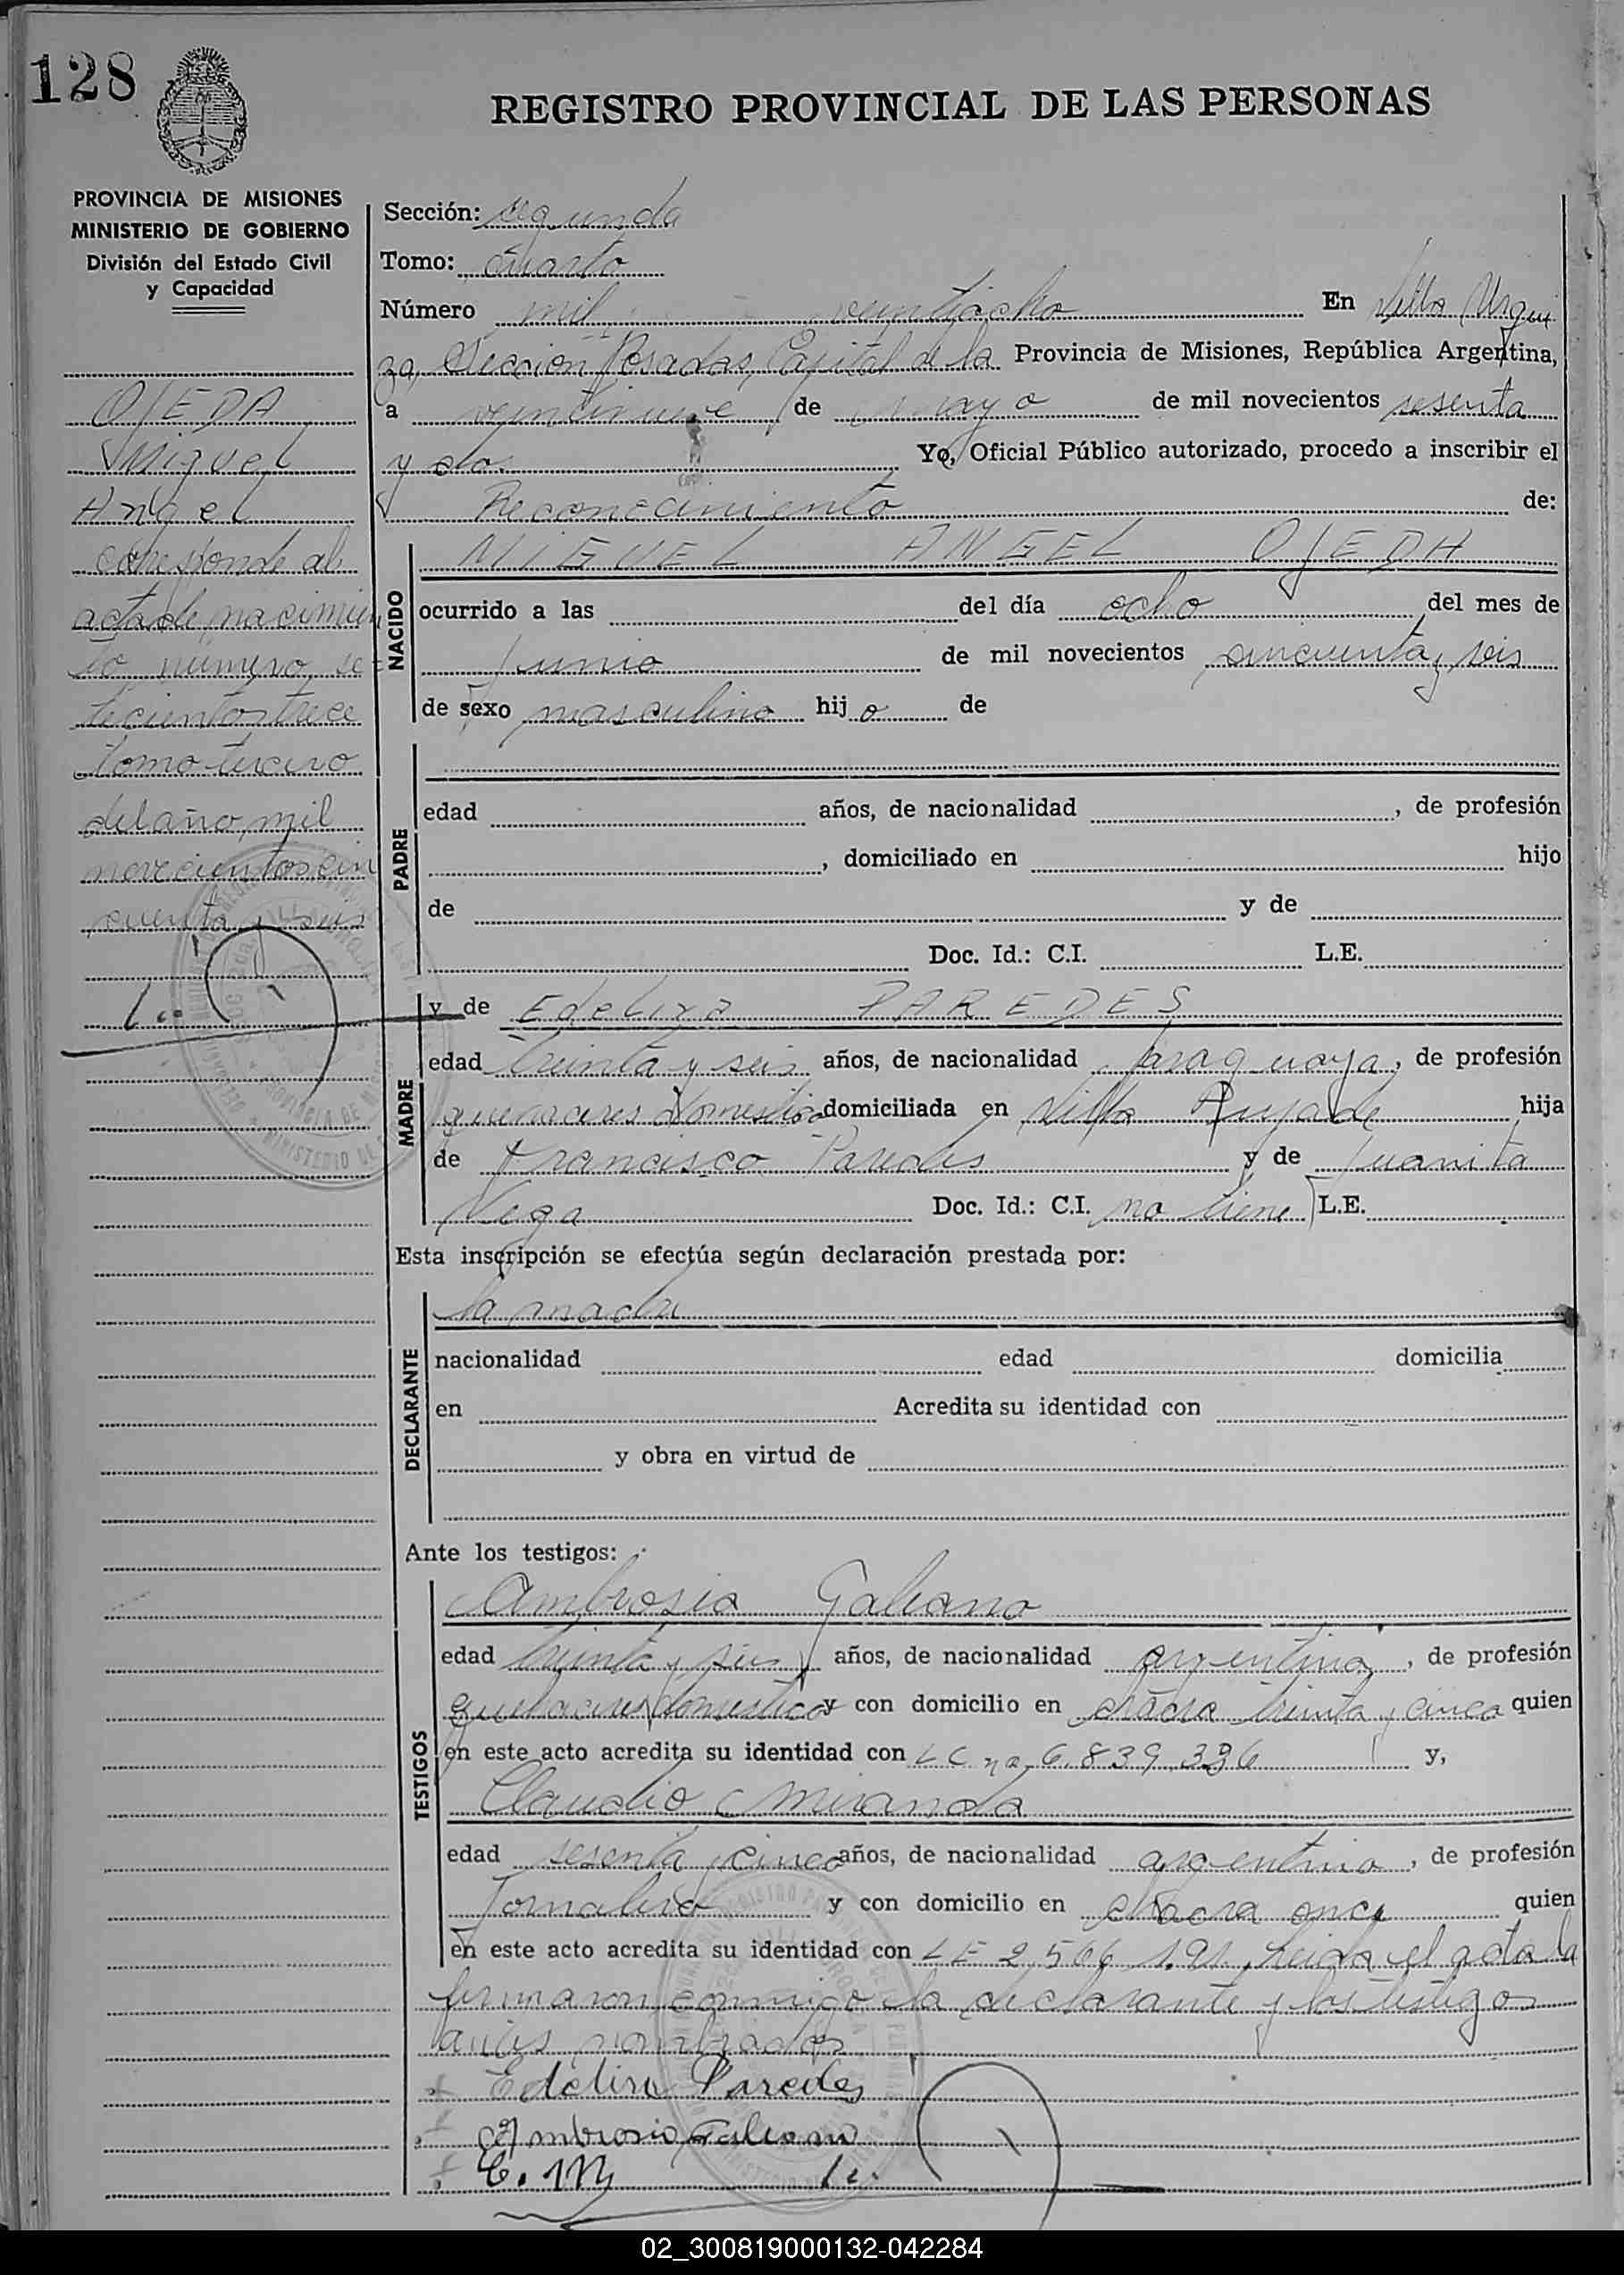 128
REGISTRO PROVINCIAL DE LAS PERSONAS
PROVINCIA DE MISIONES
MINISTERIO DE GOBIERNO
División del Estado Civil
y Capacidad
OJEDA
Miguel
Angel
corresponde al
acta de nacimien
to número se=
tecientos trece
tomo tercero
del año mil
novecientos cin
cuenta y seis
Sección: segunda
Tomo: cuarto
Número mil veintiocho En Villa Urqui
za, Sección Posadas, Capital de la Provincia de Misiones, República Argentina,
a veintinueve de mayo de mil novecientos sesenta
y dos Yo, Oficial Público autorizado, procedo a inscribir el
Reconocimiento de:
NACIDO
MIGUEL ANGEL OJEDA
ocurrido a las del día ocho del mes de
junio de mil novecientos cincuenta y seis
de sexo masculino hijo de
PADRE
edad años, de nacionalidad , de profesión
, domiciliado en hijo
de y de
Doc. Id.: C.I. L.E.
MADRE
y de Edelira PAREDES
edad treinta y seis años, de nacionalidad paraguaya, de profesión
quehaceres domestico domiciliada en Villa hija
de Francisco Paredes y de Juanita
Vega Doc. Id.: C.I. no tiene L.E.
Esta inscripción se efectúa según declaración prestada por:
DECLARANTE
la madre
nacionalidad edad domicilia
en Acredita su identidad con
y obra en virtud de
Ante los testigos:
TESTIGOS
Ambrosia Galeano
edad treinta y seis años, de nacionalidad argentina, de profesión
quehaceres domestico y con domicilio en chacra treinta y cinco quien
en este acto acredita su identidad con LC no 6.839.336 y,
Claudio Miranda
edad sesenta y cinco años, de nacionalidad argentino, de profesión
Jornalero y con domicilio en chacra once quien
en este acto acredita su identidad con LE 2.566.191. Leida el acta la
firmaron conmigo la declarante y los testigos
antes nombrados
Edelira Paredes
Ambrosia Galeano
C. M
02_300819000132-042284